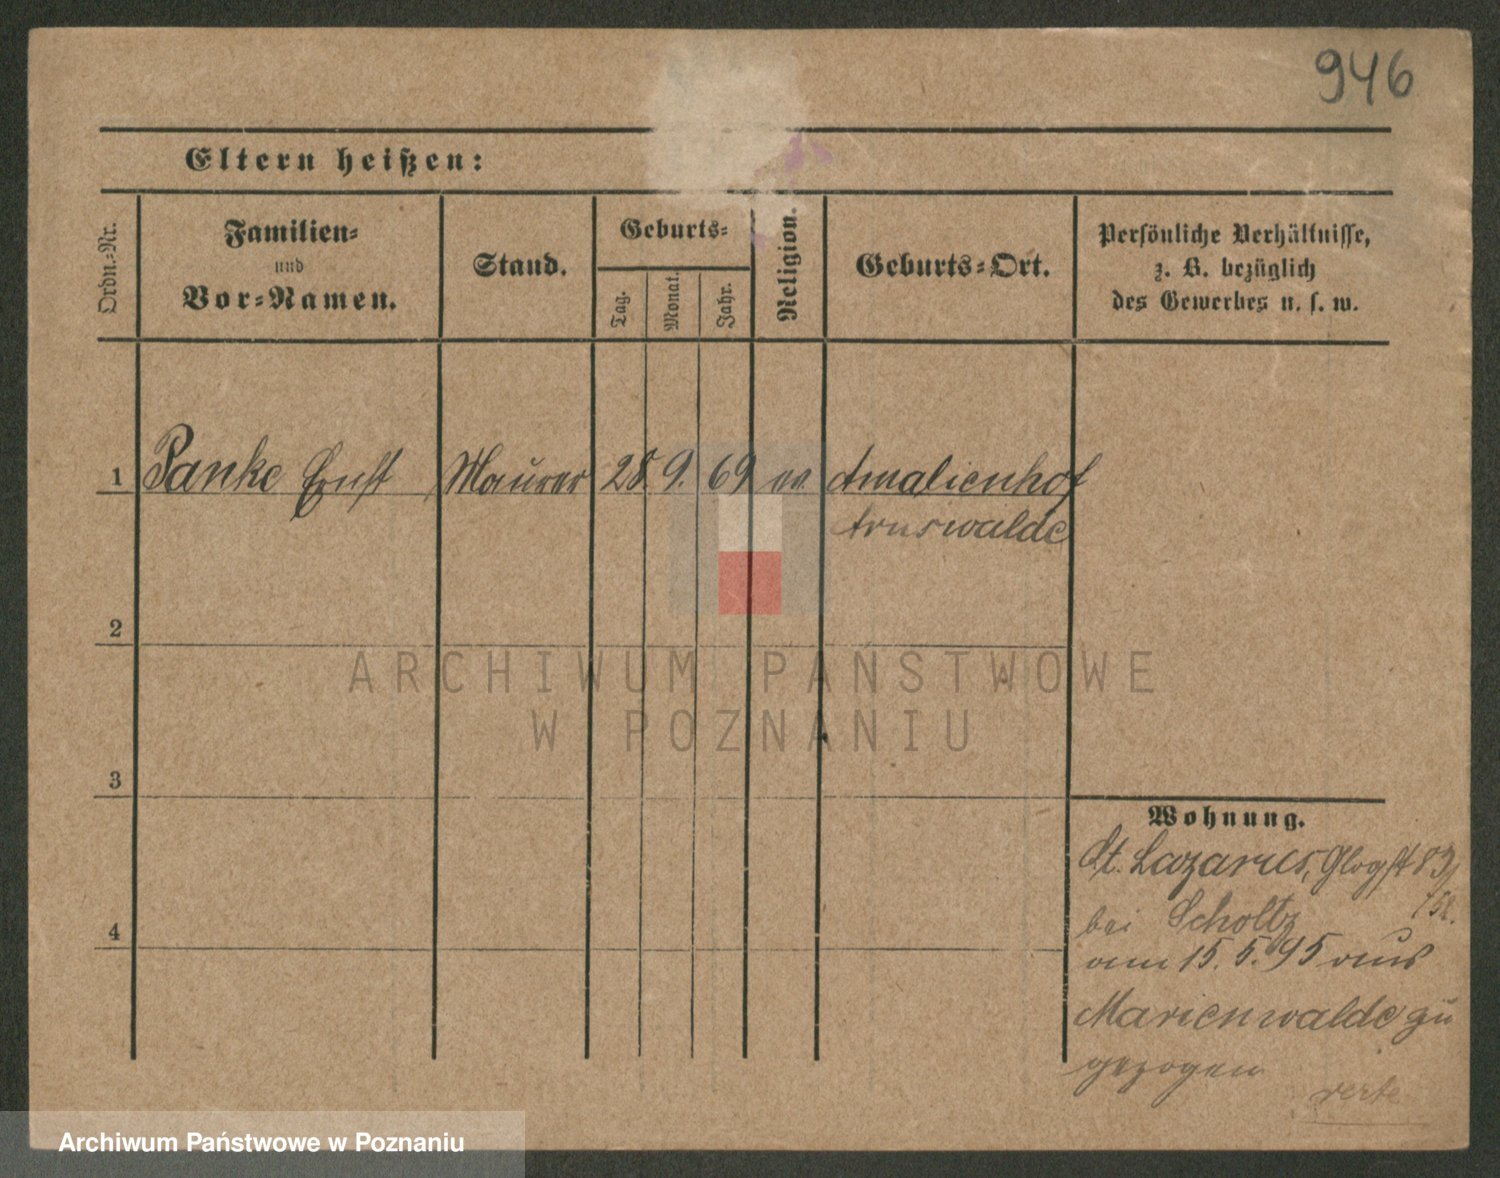 946
Eltern heißen:
Ordn.-Nr.
Familien-
und
Vor-Namen.
Stand.
Geburts-
Tag.
Monat.
Jahr.
Religion.
Geburts-Ort.
Persönliche Verhältnisse,
z. B. bezüglich
des Gewerbes u. s. w.
1 Panke Ernst Maurer 28. 9. 69 ev. Amalienhof
Arnswalde
2
3
4
Wohnung.
St. Lazarus, Glogst 83/
bei Scholtz
am 15. 5. 95 aus
Marienwalde zu
gezogen
verte
ARCHIWUM PAŃSTWOWE
W POZNANIU
Archiwum Państwowe w Poznaniu